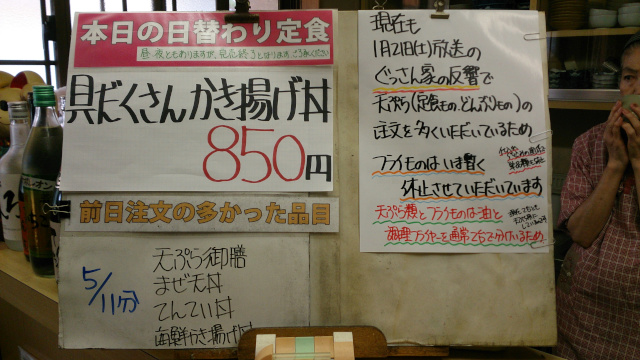 本日の日替わり定食
昼・夜ともありますが、完売終了となります。ご了承ください
具だくさんかき揚げ丼
850円
前日注文の多かった品目
5/11分
天ぷら御膳
まぜ天丼
てんてい丼
海鮮かき揚げ丼
現在も
1月21日(土)放送の
ぐっさん家の反響で
天ぷら(定食もの、どんぶりもの)の
注文を多くいただいているため
フライものはいま暫く
休止させていただいています
天ぷら類とフライものは油と
調理フライヤーを通常で台で分けているため